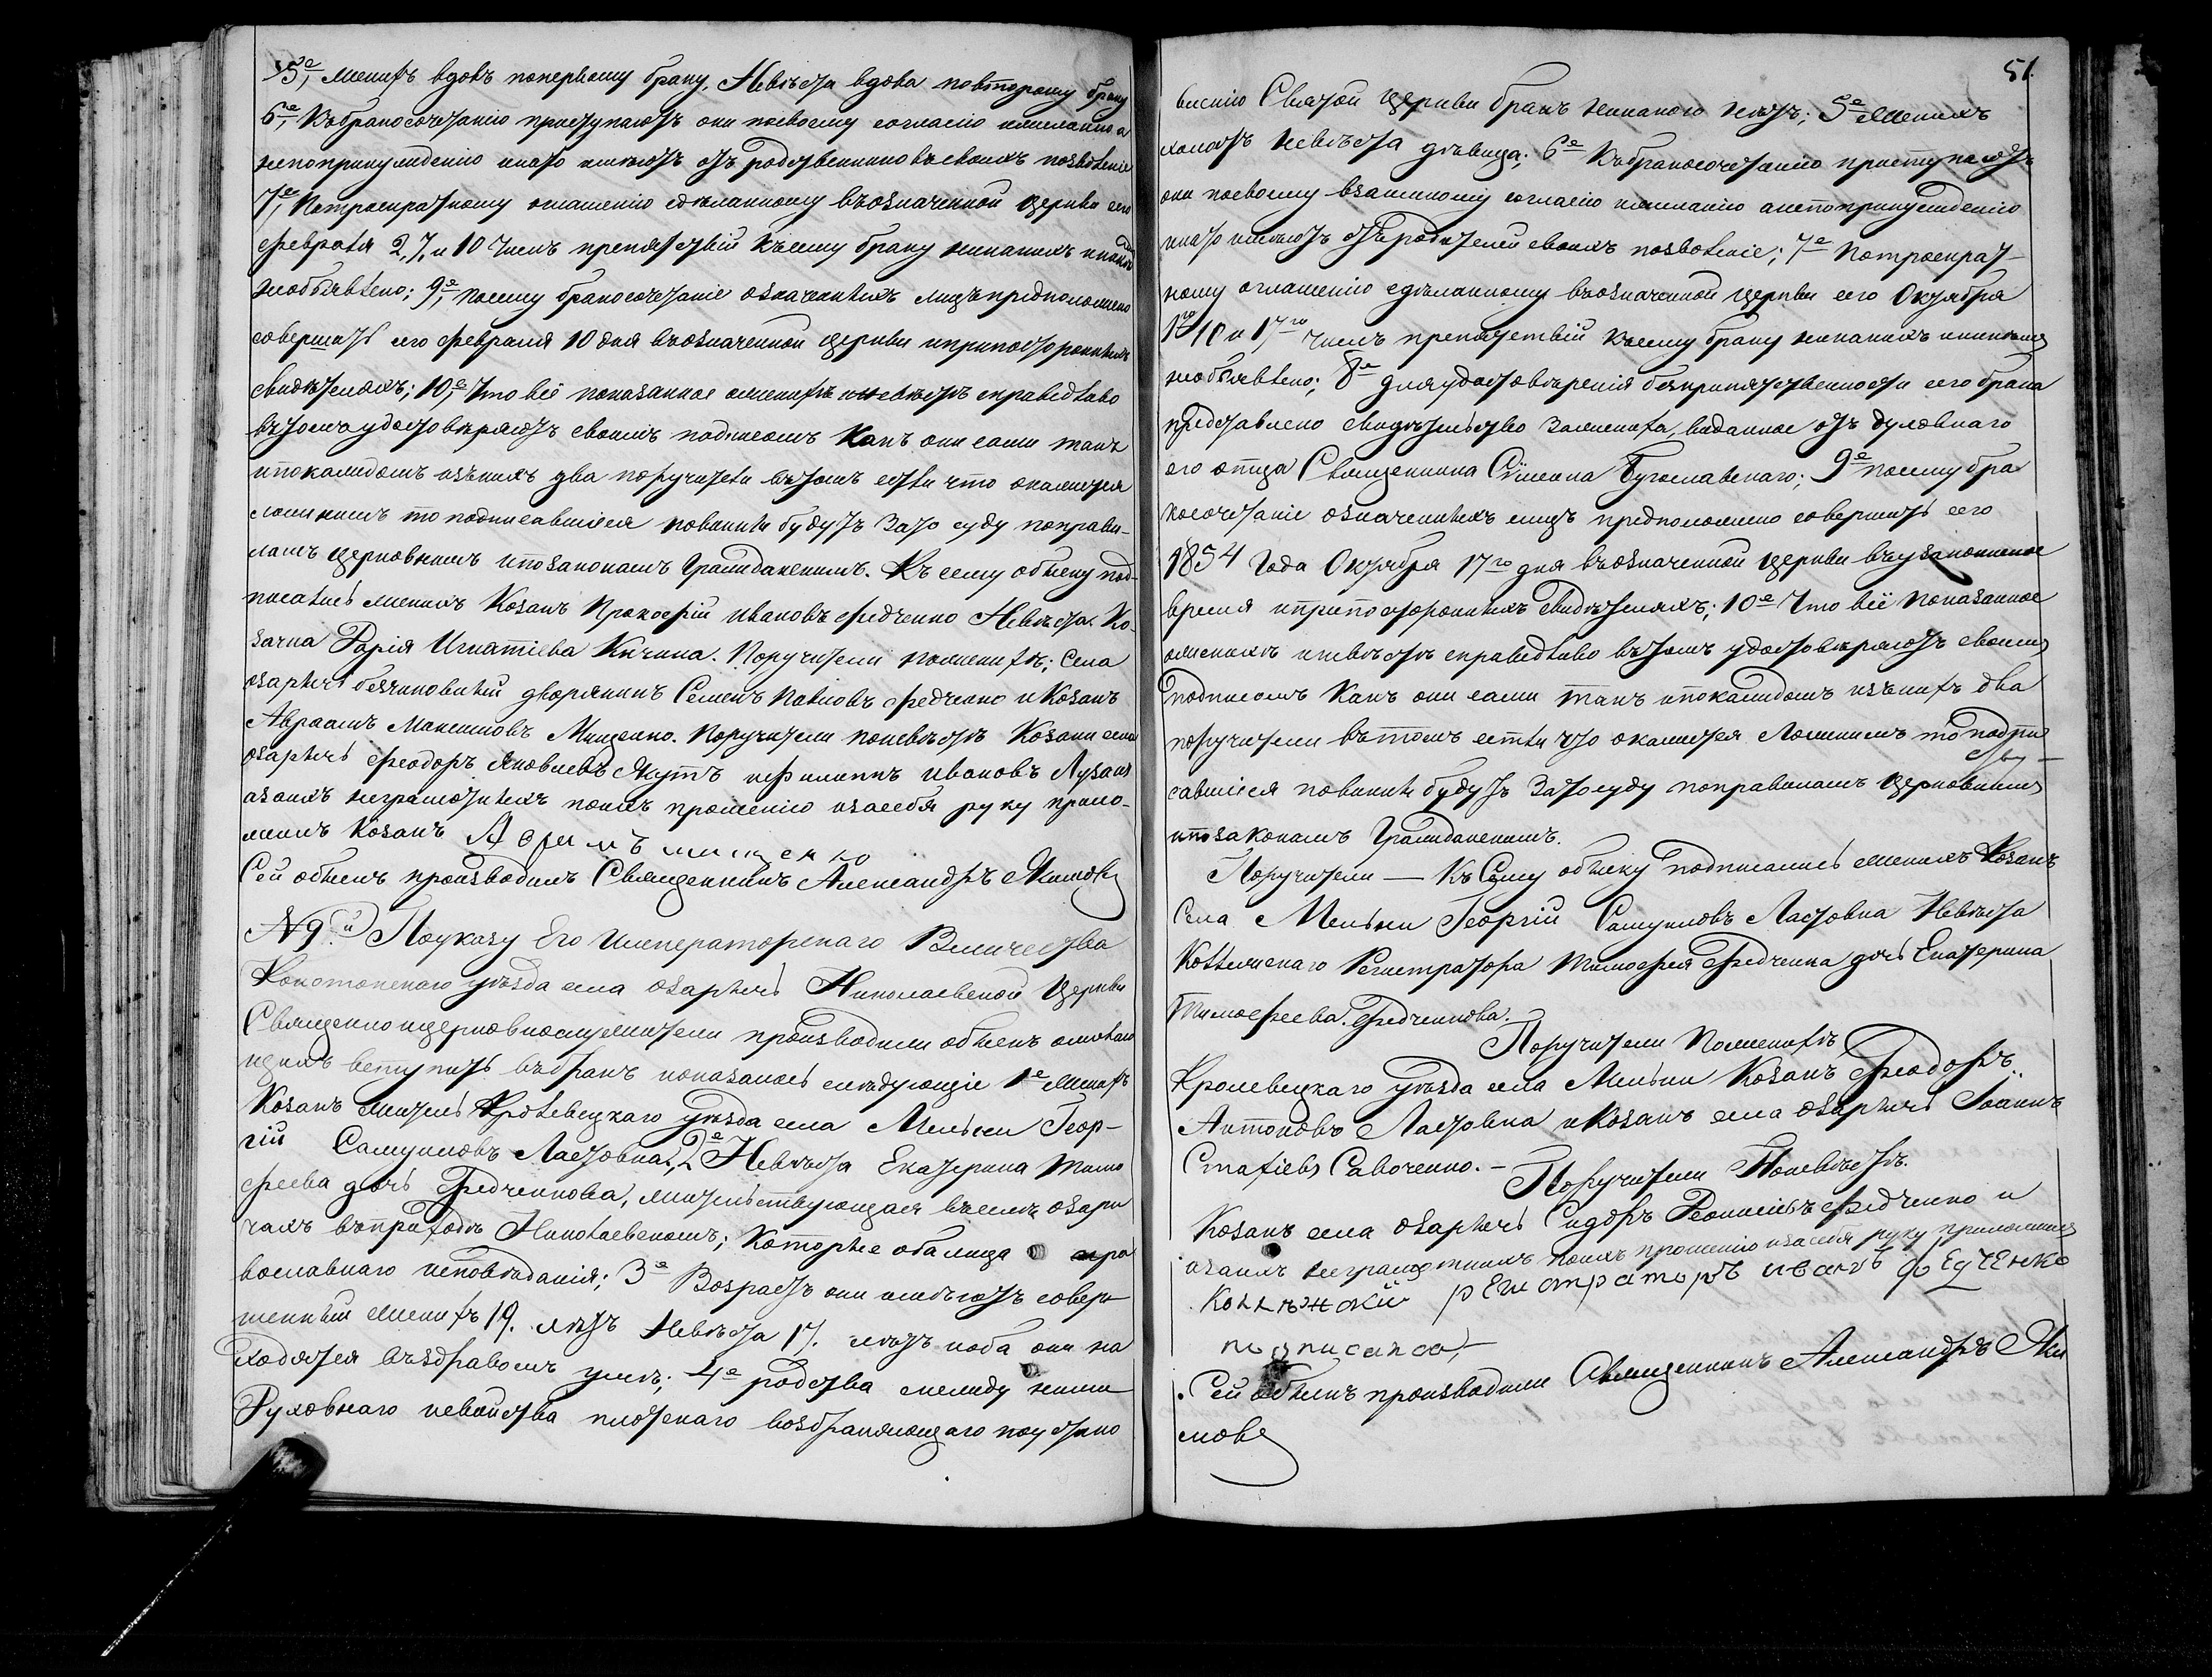 5е, Женихъ вдовъ поперьвому браку, Невѣста вдова повторому браку
6е, Къбракосочетанію приступаютъ они посвоему согласію ижеланію а
непопринужденію инато имѣютъ отъ родственниковъ своихъ позволеніе
7е, Потроекратному оглашенію сдѣланному въозначенной церкви сего
февраля 2, 7, и 10 числъ препятствій къ сему браку никакихъ никѣмъ
необъявлено; 9е, посему бракосочетаніе означенныхъ лицъ предположено
совершить сего февраля 10 дня въозначенной церкви иприпостороннихъ
свидѣтеляхъ; 10е, Что всё показанное оженихѣ и невѣстѣ справедливо
вътомъ удостовѣряютъ своимъ подписомъ Какъ они сами такъ
ипокаждомъ изънихъ два поручители вътомъ если что окажется
ложнымъ то подписавшіеся повинны будутъ Зато суду поправи-
ламъ церковнымъ ипозаконамъ Гражданскимъ. Къ сему обыску под-
писались женихъ Козакъ Прокофій Ивановъ Федченко Невѣста Ко-
зачка Дарія Игнатіева Кичина. Поручители поженихѣ; Села
Озаричъ безчиновный дворянинъ Семенъ Павловъ Федченко и Козакъ
Авраамъ Максимовъ Мищенко. Поручители поневѣстѣ Козаки села
Озаричъ Феодоръ Яковлевъ Якутъ и Филиппъ Ивановъ Лузанъ
азанихъ неграмотныхъ поихъ прошенію изасебя руку прило-
жилъ Козакъ Аврамъ мищенко
Сей обыскъ производилъ Священникъ Александръ Якимовъ
№ 9й Поуказу Его Императорскаго Величества
Конотопскаго уѣзда села Озаричъ Николаевской Церкви
Священно ицерковнослужители производили обыскъ ожелаю
щихъ вступить въбракъ иоказалось слѣдующіе 1е Женихъ
Козакъ житель Кролевецкаго уѣзда села Мельни Геор-
гій Самуиловъ Ластовка, 2е Невѣста Екатерина Тимо
феева дочь Федченкова, жительствующая въселѣ Озари
чахъ въприходѣ Николаевскомъ; Которые оба лица пра
вославнаго исповѣданія; 3е Возрастъ они имѣютъ совер
шенный Женихъ 19. лѣтъ Невѣста 17. лѣтъ иоба они на
ходятся въздравомъ умѣ; 4е родства между ними
Духовнаго исвойства плотскаго возбраняющаго поустано
51.
вленію Святой Церкви бракъ никакого нѣтъ; 5е Женихъ
холостъ невѣста дѣвица; 6е Къбракосочетанію приступаютъ
они посвоему взаимному согласію ижеланію анепопринужденію
инато имѣютъ отъродителей своихъ позволеніе; 7е Потроекрат-
ному оглашенію сдѣланному въозначенной церкви сего Октября
1го 10 и 17го числъ препятствій ксему браку никакихъ никѣмъ
необъявлено; 8е Дляудостовѣренія безпрепятственности сего брака
представлено свидѣтельство Заженихѣ, виданное отъ духовнаго
его отца Священника Сѵмеона Бугославскаго; 9е посему бра
косочетаніе означенныхъ лицъ предположено совершить сего
1854 Года Октября 17го дня въозначенной церкви въузаконенное
время ипрепостороннихъ свидѣтеляхъ; 10е Что всё показанное
оженихѣ иневѣстѣ справедливо вътомъ удостовѣряютъ своимъ
подписомъ Какъ они сами такъ ипокаждомъ изънихъ два
поручители вътомъ если что окажется Ложнымъ то подпи
савшіеся повинны будутъ Затосуду поправиламъ церковнымъ
ипозаконамъ Гражданскимъ.
Поручители — Къ Сему обыску подписались женихъ Козакъ
Села Мельни Георгій Самуиловъ Ластовка Невѣста
Коллежскаго Регистратора Тимофея Федченка дочь Екатерина
Тимофеева Федченкова.
Поручители Поженихѣ
Кролевецкаго уѣзда села Мельни Козакъ Феодоръ
Антоновъ Ластовка и Козакъ села Озаричъ Іоаннъ
Савоченко. – Поручители Поневѣстѣ.
Козакъ села Озаричъ Сидоръ Федченко и
азанихъ неграмотныхъ поихъ прошенію изасебя руку приложилъ
Коллѣжскій рЕгистраторъ иванъ фЕдчЕнко
подписался
Сей обыскъ производили Священникъ Александръ Яки
мовъ